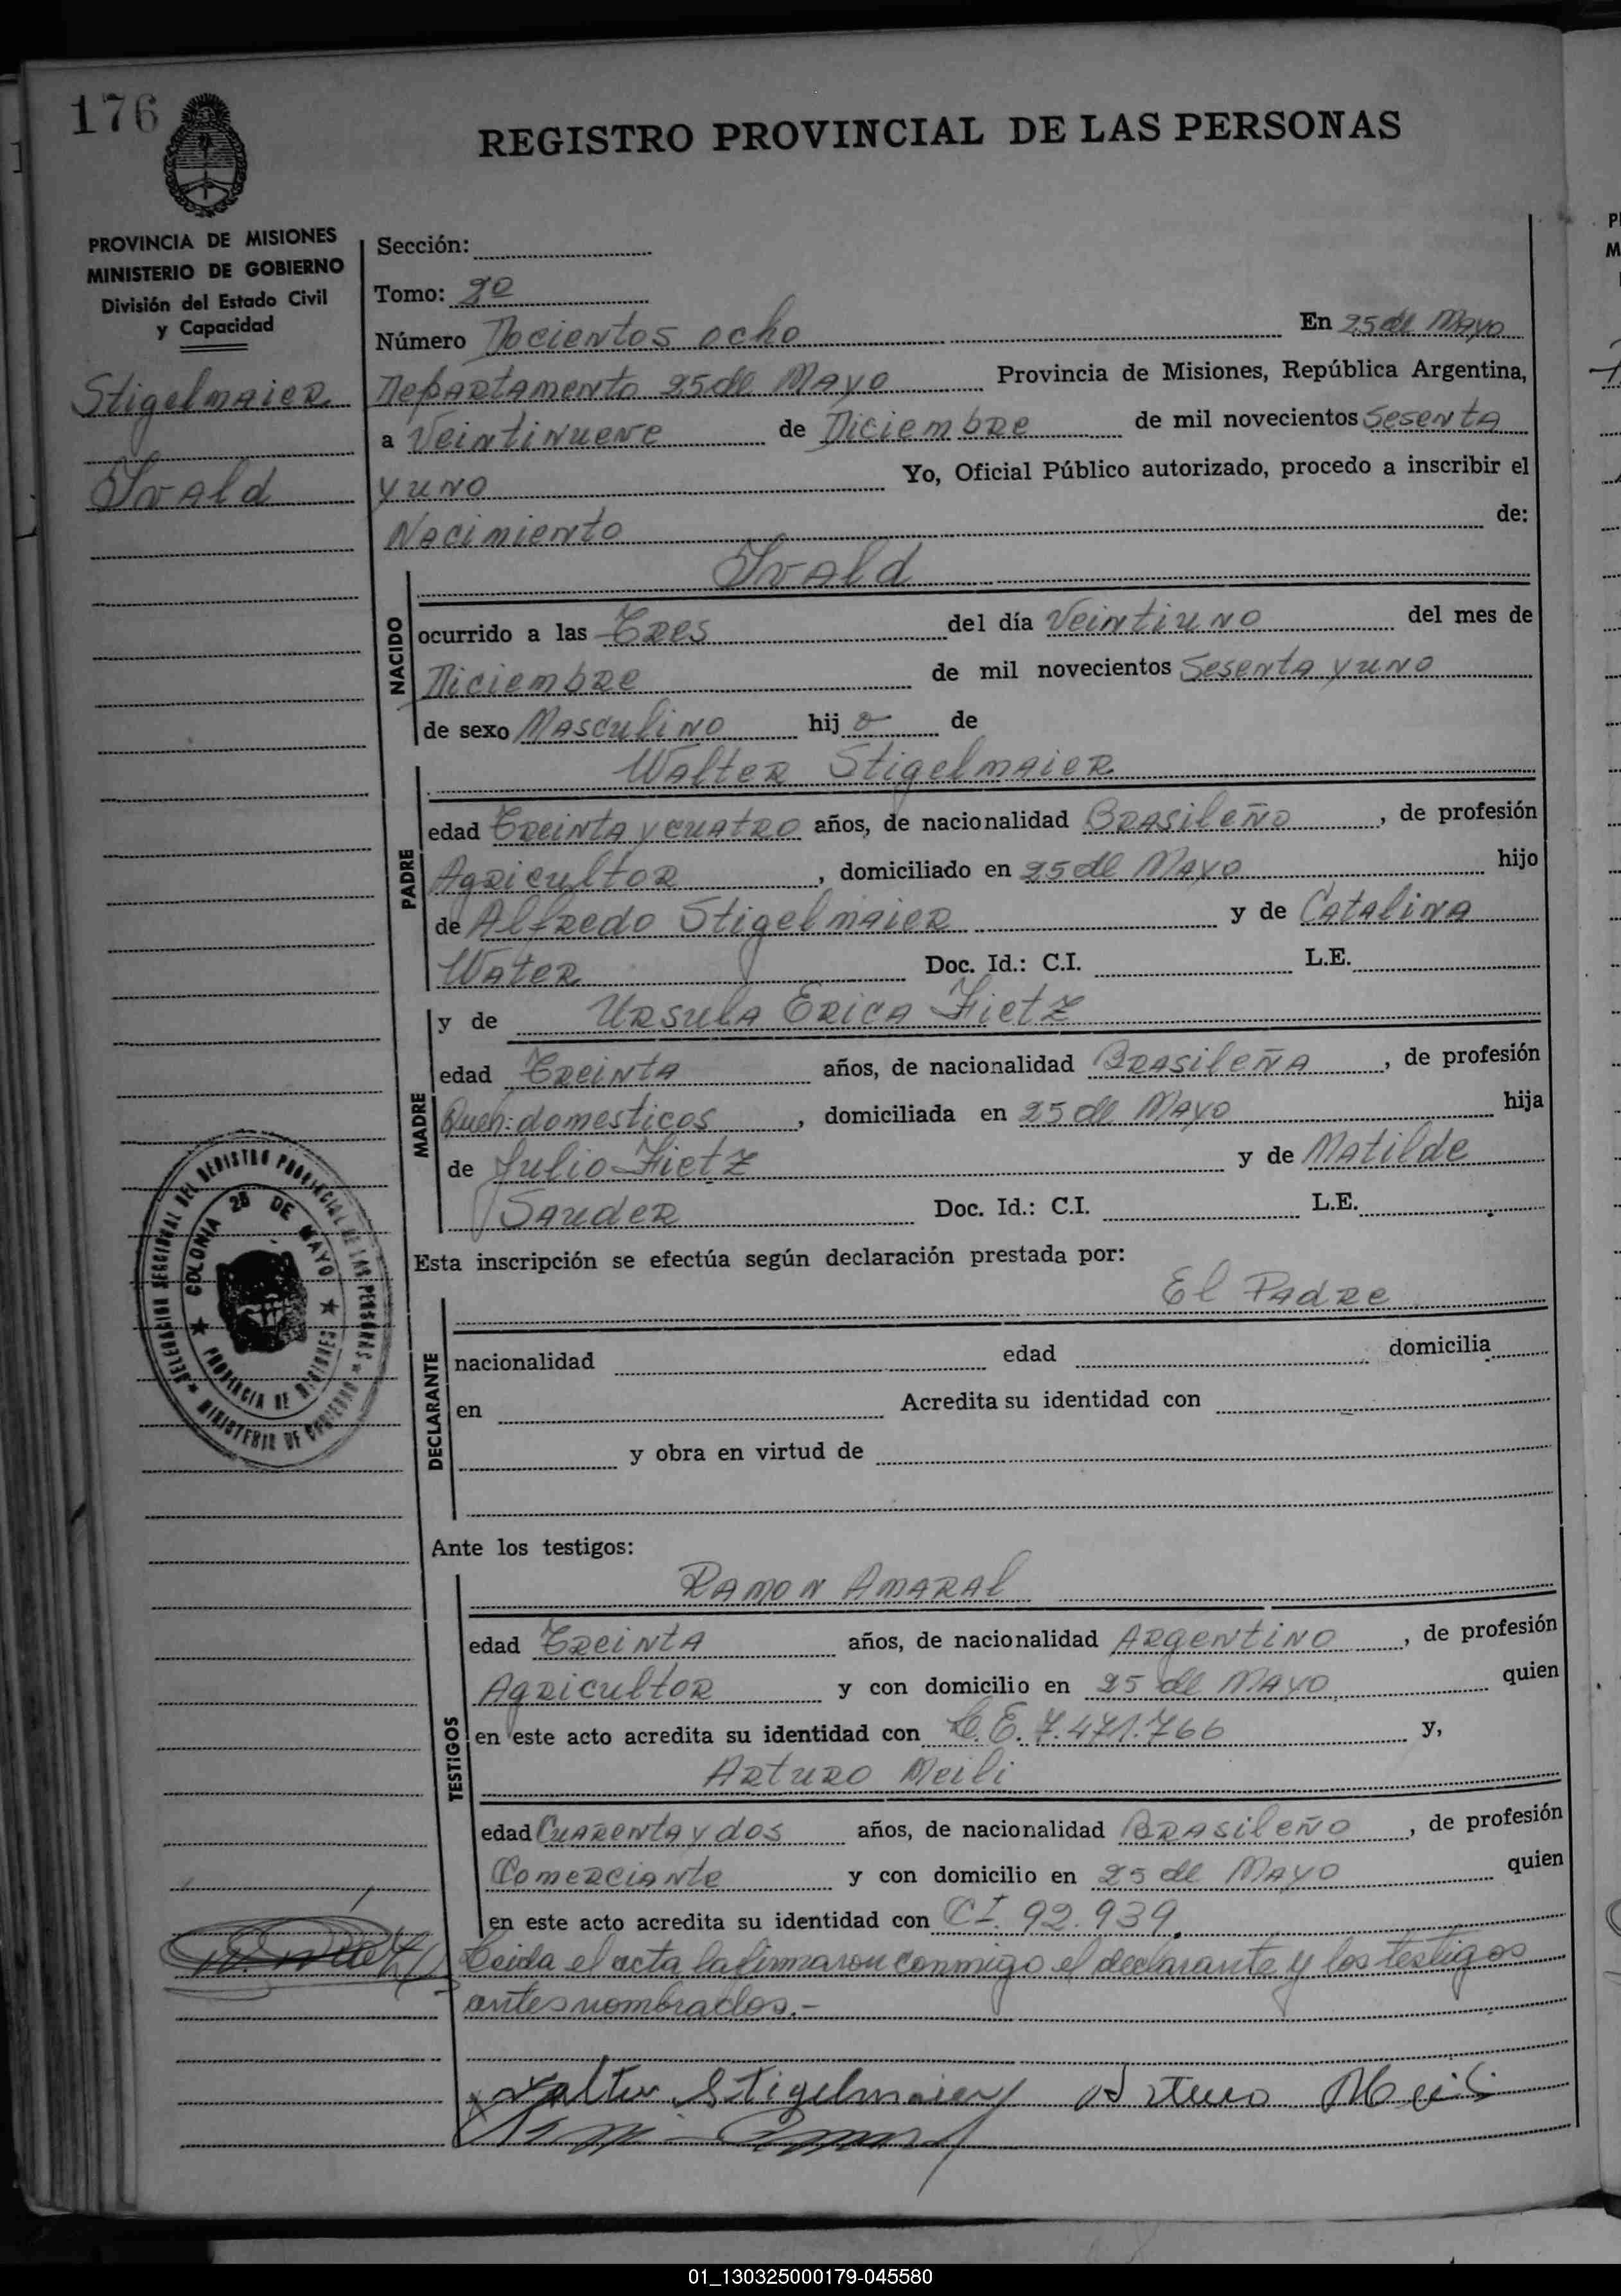 176
REGISTRO PROVINCIAL DE LAS PERSONAS
PROVINCIA DE MISIONES
MINISTERIO DE GOBIERNO
División del Estado Civil
y Capacidad
Stigelmaier
Ivald
Sección:
Tomo: 2º
Número Docientos ocho En 25 de Mayo
Departamento 25 de Mayo Provincia de Misiones, República Argentina,
a Veintinueve de Diciembre de mil novecientos Sesenta
y uno Yo, Oficial Público autorizado, procedo a inscribir el
Nacimiento de:
Ivald
NACIDO
ocurrido a las Tres del día Veintiuno del mes de
Diciembre de mil novecientos Sesenta y uno
de sexo Masculino hij o de
Walter Stigelmaier
PADRE
edad Treinta y cuatro años, de nacionalidad Brasileño, de profesión
Agricultor, domiciliado en 25 de Mayo hijo
de Alfredo Stigelmaier y de Catalina
Water Doc. Id.: C.I. L.E.
y de Ursula Erica Fietz
MADRE
edad Treinta años, de nacionalidad Brasileña, de profesión
Queh: domesticos, domiciliada en 25 de Mayo hija
de Julio Fietz y de Matilde
Sauder Doc. Id.: C.I. L.E.
DELEGACION SECCIONAL DEL REGISTRO PROVINCIAL DE LAS PERSONAS
MINISTERIO DE GOBIERNO
COLONIA 25 DE MAYO
PROVINCIA DE MISIONES
Esta inscripción se efectúa según declaración prestada por:
El Padre
DECLARANTE
nacionalidad edad domicilia
en Acredita su identidad con
y obra en virtud de
Ante los testigos:
Ramon Amaral
TESTIGOS
edad Treinta años, de nacionalidad Argentino, de profesión
Agricultor y con domicilio en 25 de Mayo quien
en este acto acredita su identidad con L.E. 7.471.766 y,
Arturo Meili
edad Cuarenta y dos años, de nacionalidad Brasileño, de profesión
Comerciante y con domicilio en 25 de Mayo quien
en este acto acredita su identidad con CI. 92.939.
Leida el acta la firmaron conmigo el declarante y los testigos
antes nombrados.-
Walter Stigelmaier Arturo Meili
01_130325000179-045580